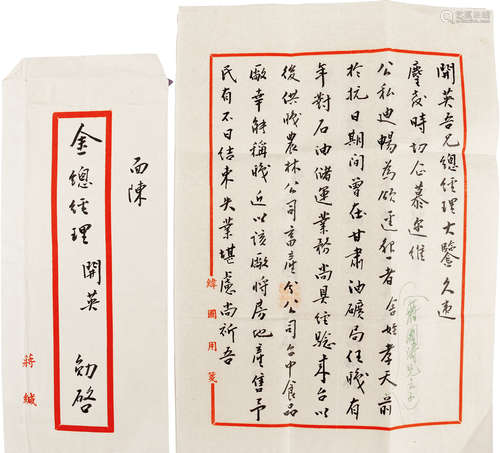 面陳
金總經理 開英 勛啓
蔣緘
開英吾兄總經理大鑒久違
塵教時切企慕辰維
公私迪暢為頌送者舍姪孝天前
於抗日期間曾在甘肅油礦局任職有
年對石油儲運業務尚具經驗來台以
後供職農林公司畜產分公司台中食品
廠幸能稱職近以該廠將房地產售予
民有不日結束失業堪慮尚祈吾
緯國用箋